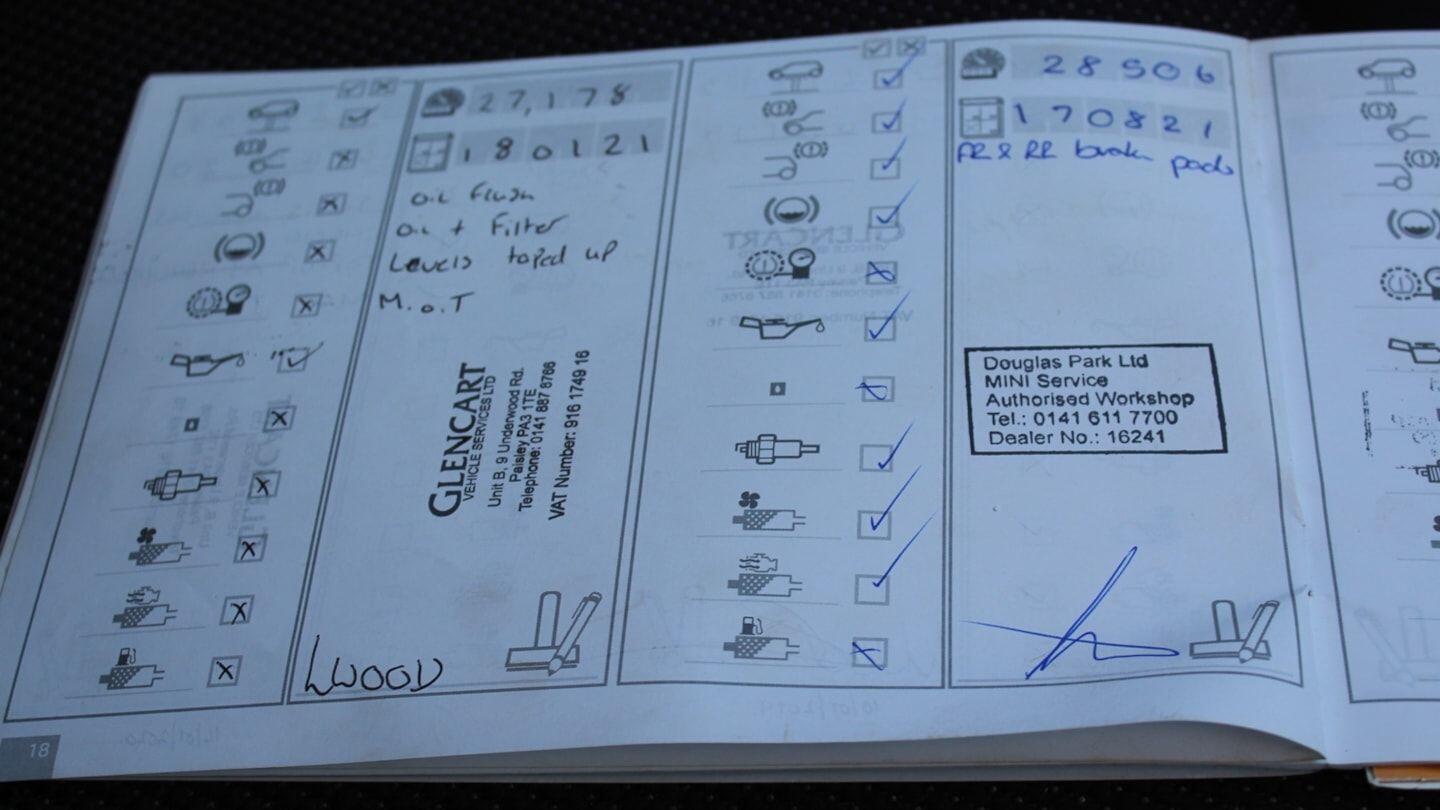 27,178
180121
Oil flush
Oil + Filter
Levels toped up
M.O.T
GLENCART
VEHICLE SERVICES LTD
Unit B, 9 Underwood Rd.
Paisley PA3 1TE
Telephone: 0141 887 8766
VAT Number: 916 1749 16
LWOOD
18
28506
170821
FR & RR brake pads
Douglas Park Ltd
MINI Service
Authorised Workshop
Tel.: 0141 611 7700
Dealer No.: 16241